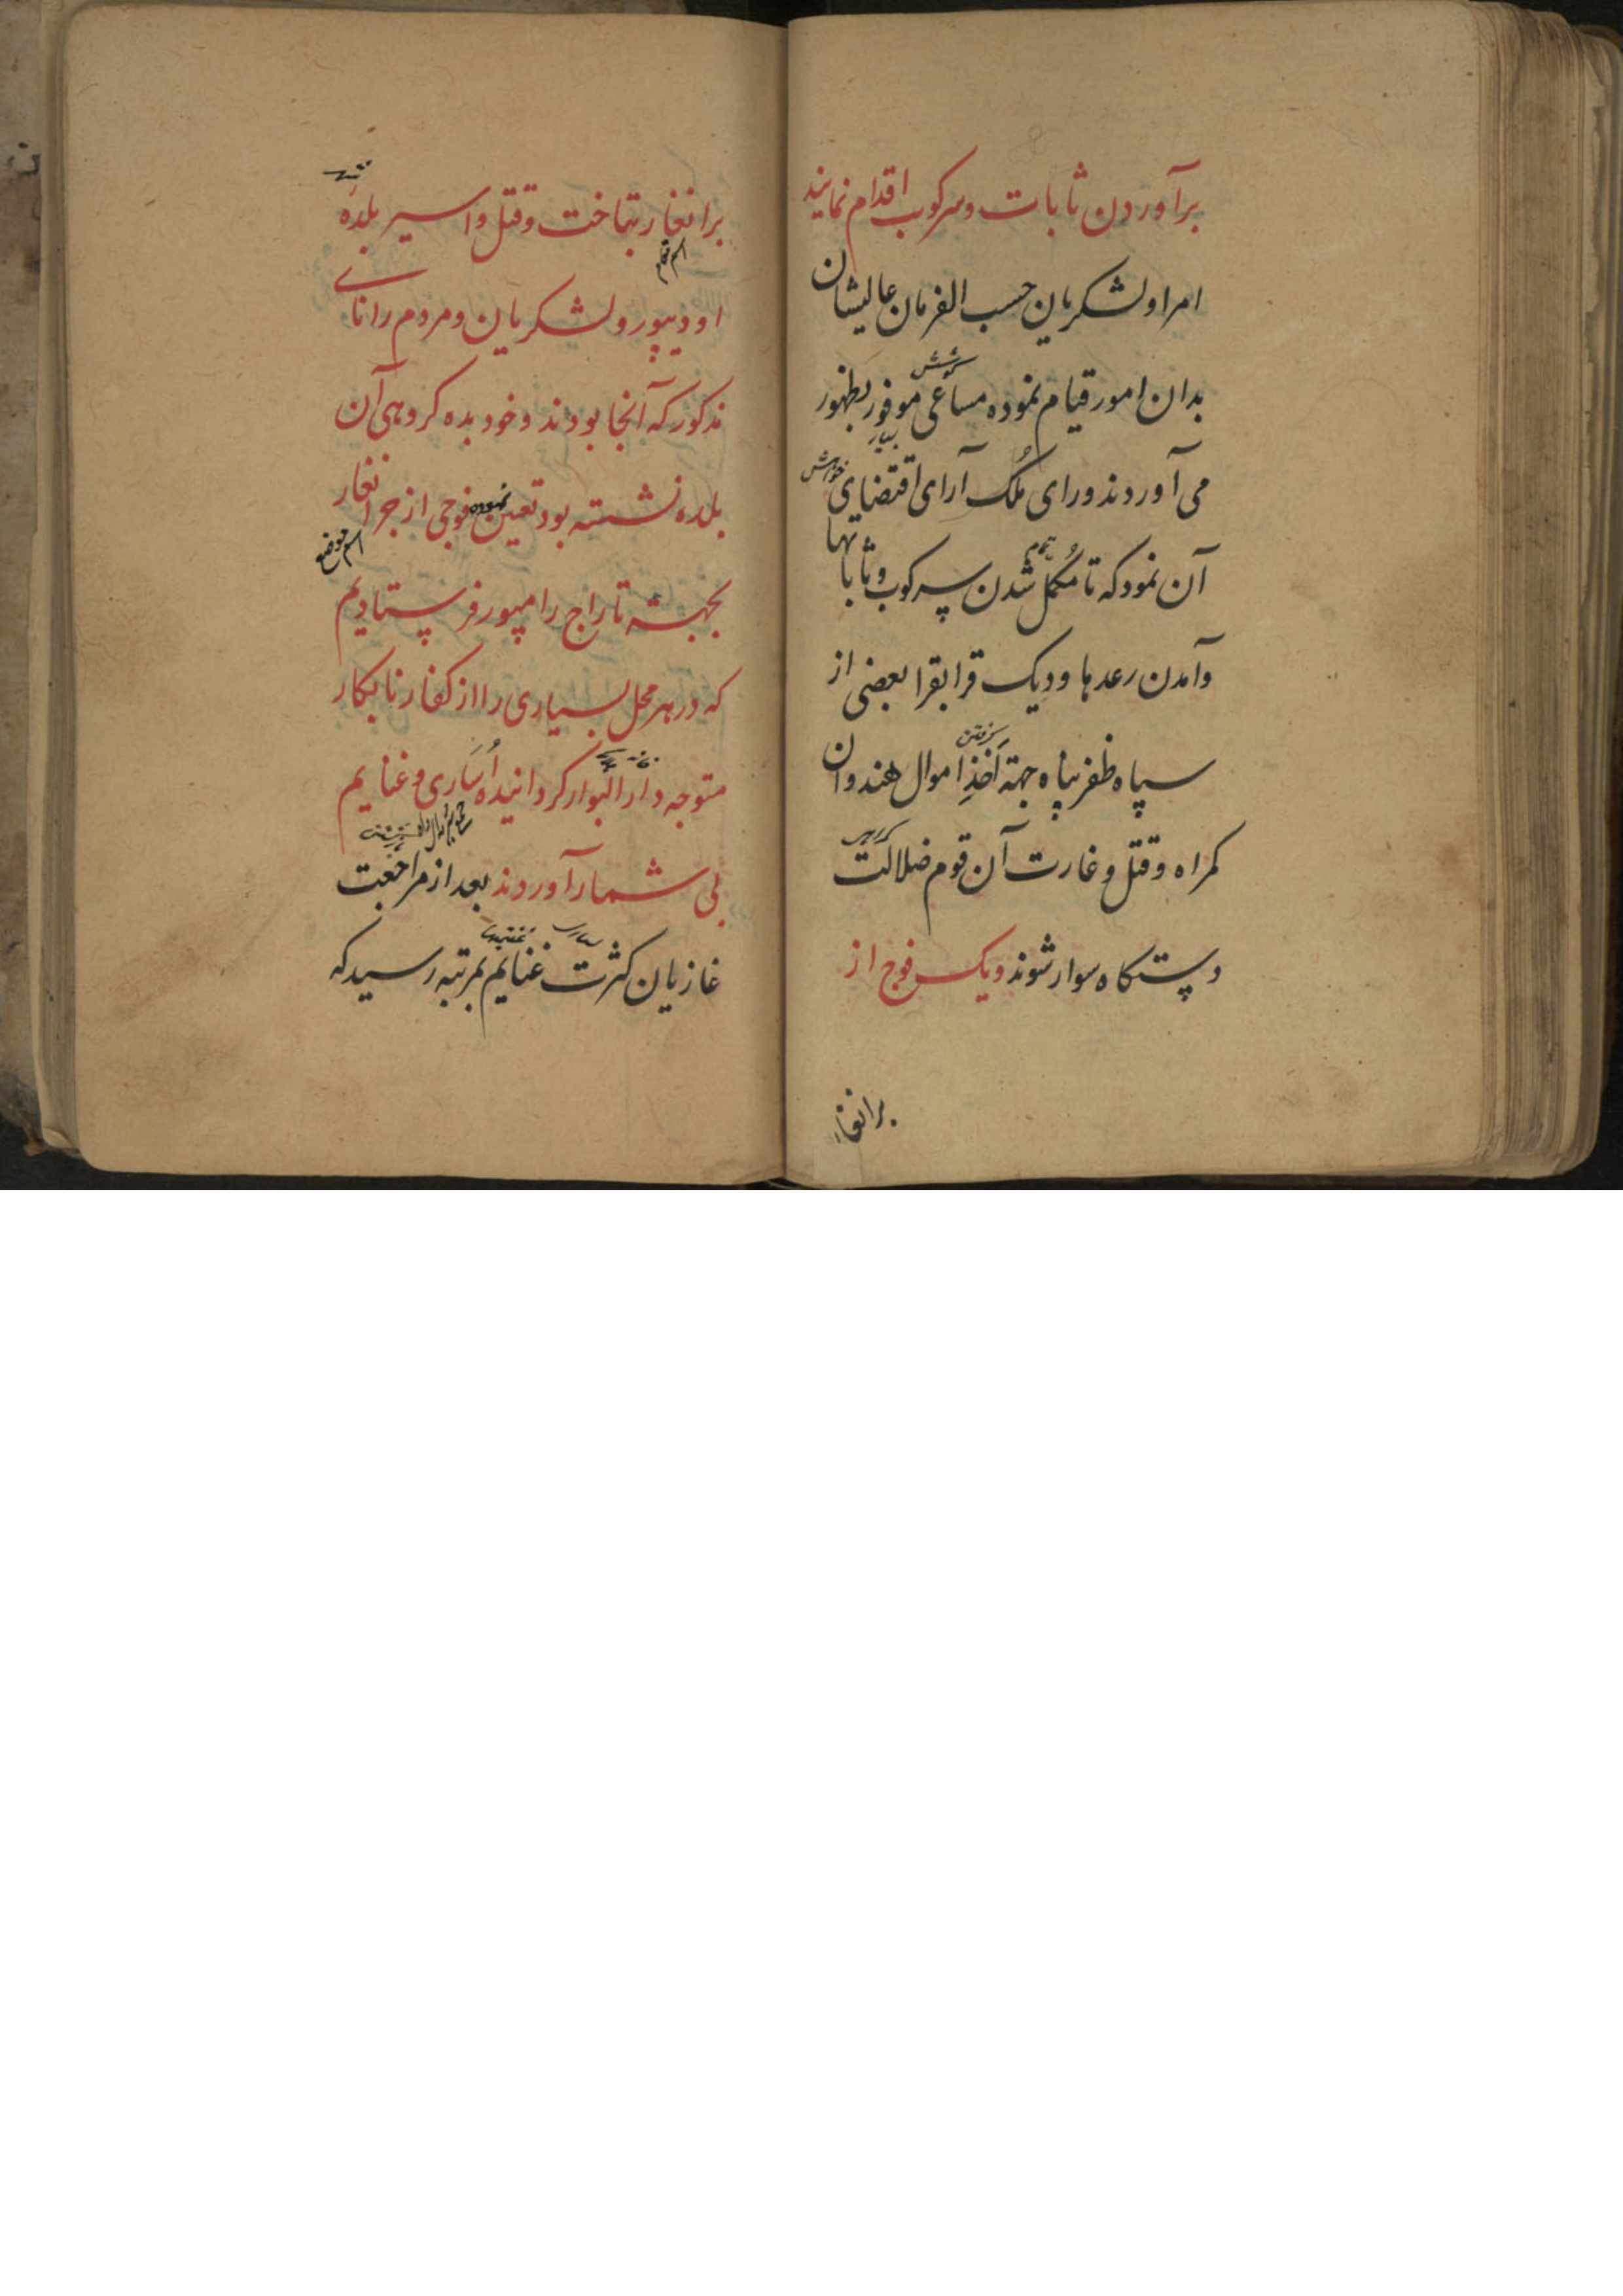 برآوردن ثابات و سرکوب اقدام نمایند
امرا و لشکریان حسب الفرمان عالیشان
کوشش
بدان امور قیام نموده مساعی موفور بظهور
بسیار
خواهش
می آوردند و رای مُلک آرای اقتضای
آن نمود که تا مُکمل شدن سرکوب و ثاباتها
تمام
وآمدن رعدها و دیک قرابقرا بعضی از
گرفتن
سپاه ظفر پناه جهة اَخذِ اموال هندوان
کمراه و قتل و غارت آن قوم ضلالت
دستکاه سوار شوند و یک فوج از
برانغار
شهر
برانغار بتاخت و قتل و اسیر بلدهٔ
اسم مقام
اودیپور و لشکریان و مردم رانای
مذکور که آنجا بودند و خود بده کروهی آن
بلده نشسته بود تعین نموده فوجی از جرانغار
اسم موضع
بجهة تاراج رامپور فرستادیم
که در هر محل بسیاری را از کفار نابکار
متوجه دار البوار کردانیده اُسَاری و غنایم
بی شمار آوردند بعد از مراجعت
غازیان کثرت غنایم بمرتبه رسید که